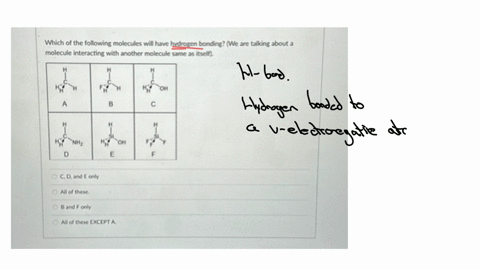 Which of the following molecules will have hydrogen bonding? (We are talking about a
molecule interacting with another molecule same as itself).
H H H
C C C
H H H F H H H OH
A B C
H H H
C Si Si
H NH₂ H OH F F
D E F
C, D, and E only
All of these.
B and F only
All of these EXCEPT A.
H-bond.
Hydrogen bonded to
a v-electronegative atr